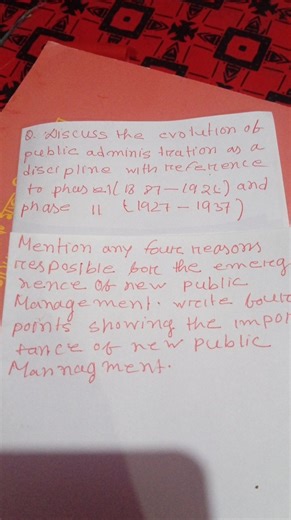 Q. Discuss the evolution of
public adminis tration as a
discipline with reference
to phase1(1887-1926) and
phase II (1927-1937)
Mention any four reasons
resposible for the emerg
nence of new public
Management. write four
points showing the impor
tance of new public
Mannagment.